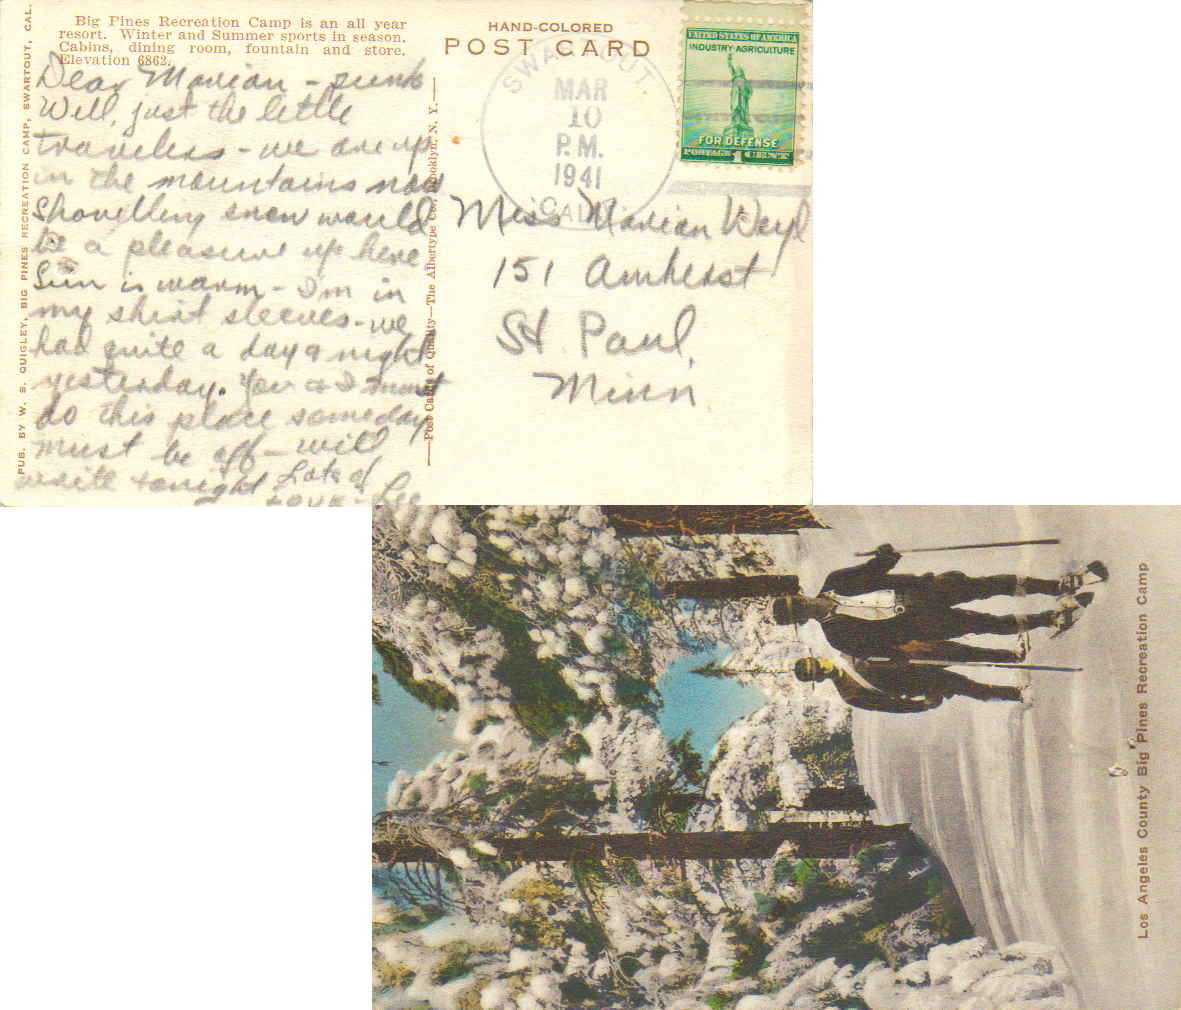 Big Pines Recreation Camp is an all year
resort. Winter and Summer sports in season.
Cabins, dining room, fountain and store.
Elevation 6862.
HAND-COLORED
POST CARD
SWARTOUT,
MAR
10
P.M.
1941
CALIF.
UNITED STATES OF AMERICA
INDUSTRY·AGRICULTURE
FOR DEFENSE
POSTAGE 1 CENT
PUB. BY W. S. QUIGLEY, BIG PINES RECREATION CAMP, SWARTOUT, CAL.
Dear Marian - 
Well, just the little
travelers - we are up
in the mountains now
Shovelling snow would
be a pleasure up here
Sun is warm - I'm in
my shirt sleeves - we
had quite a day & night
yesterday. You & I must
do this place someday
must be off - will
write tonight Lots of
Love - Lee
—Post Cards of Quality—The Albertype Co., Brooklyn, N. Y.—
Miss Marian Weyl
151 Amherst
St Paul,
Minn
Los Angeles County Big Pines Recreation Camp